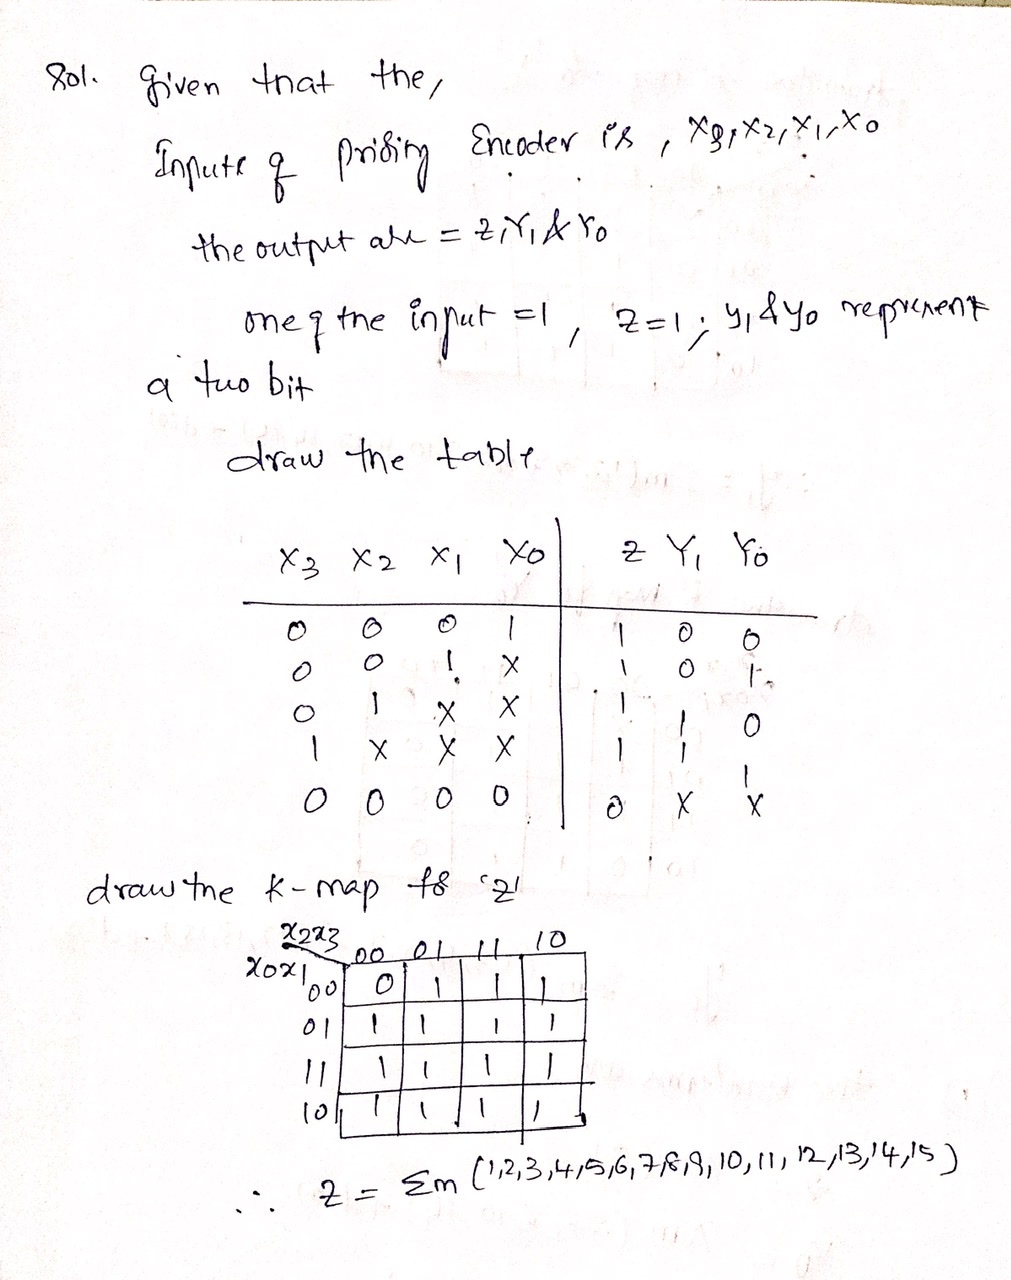 Sol. Given that the,
Inputs of priority Encoder is, X3, X2, X1, X0
the output are = Z, Y1 & Y0
one of the input = 1, Z=1; y1 & y0 represent
a two bit
draw the table
X3 X2 X1 X0 Z Y1 Y0
0 0 0 1 1 0 0
0 0 1 X 1 0 1
0 1 X X 1 1 0
1 X X X 1 1 1
0 0 0 0 0 X X
draw the K-map for 'Z'
x2x3 00 01 11 10
x0x1
00 0 1 1 1
01 1 1 1 1
11 1 1 1 1
10 1 1 1 1
∴ Z = Σm (1,2,3,4,5,6,7,8,9,10,11,12,13,14,15)